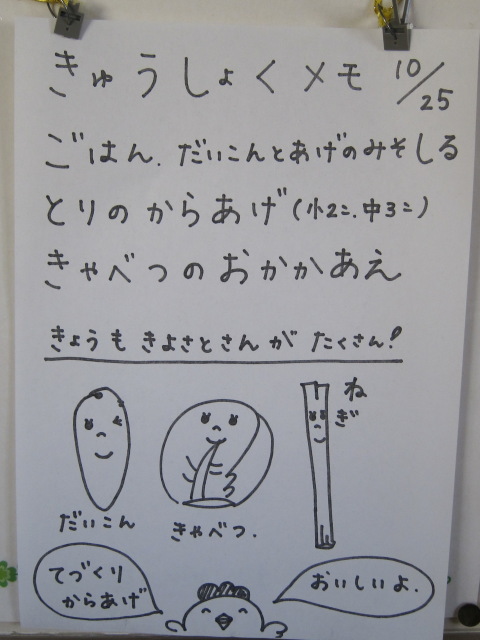 きゅうしょくメモ 10/25
ごはん.だいこんとあげのみそしる
とりのからあげ(小2コ.中3コ)
きゃべつのおかかあえ
きょうもきよさとさんがたくさん!
ねぎ
だいこん
きゃべつ.
てづくり
からあげ
おいしいよ.